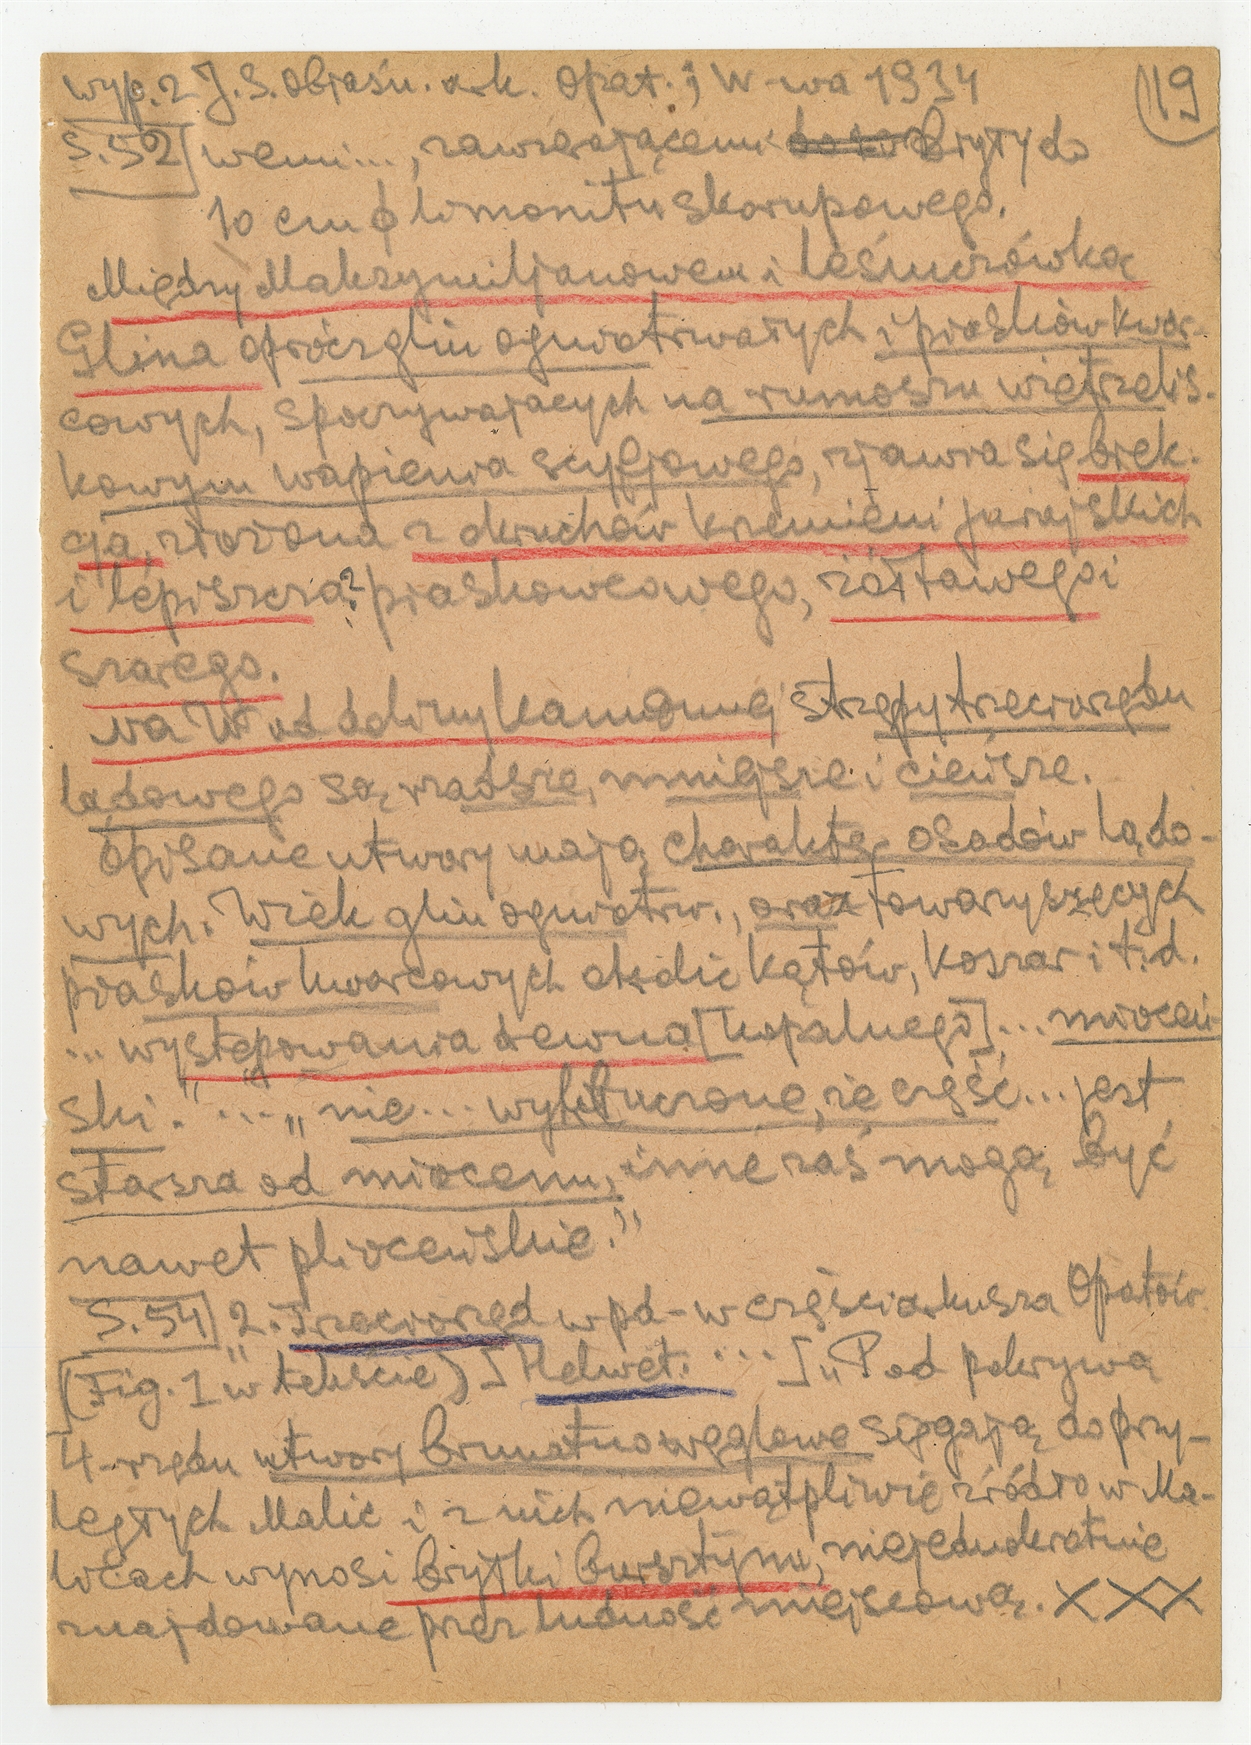 wyp. z J. S. Objaśn. ark. Opat.; W-wa 1934
119
S. 52] wemi..., zawierającemi bryły do
10 cm ϕ limonitu skorupowego.
Między Maksymiljanowem i Leśmczówką
Glina oprócz glin ogniotrwałych i piasków kwar-
cowych, spoczywających na rumoszu wietrzelis-
kowym wapienia scyfjowego, zjawia się brek-
cja, złożona z okruchów krzemieni jurajskich
i lepiszcza? piaskowcowego, żółtawego i
szarego.
Na W od doliny Kamiennej strzępy trzeciorzędu
lądowego są rzadsze, mniejsze i cieńsze.
Opisane utwory mają charakter osadów lądo-
wych. Wiek glin ogniotrw., oraz towarzyszących
piasków kwarcowych okolic Kątów, Koszar i t.d.
... występowania drewna [kopalnego]... mioceń-
ski." ... "nie... wykluczone, że część... jest
starsza od miocenu, inne zaś mogą być
nawet plioceńskie."
S. 54] "2. Trzeciorzęd w pd-w części arkusza Opatów
(Fig. 1 w tekście) [Helwet. ...] „Pod pokrywą
4-rzędu utwory brunatnowęglowe sięgają do przy-
ległych Malic i z nich niewątpliwie źródło w Ma-
licach wynosi bryłki bursztynu, niejednokrotnie
znajdowane przez ludność miejscową. XXX